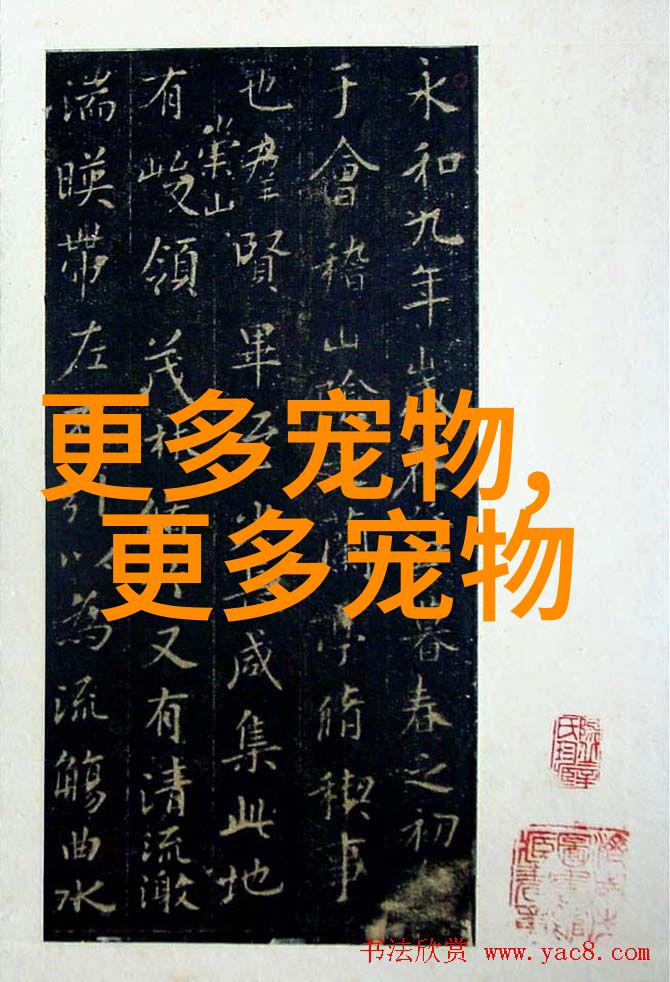 永和九年歲在暮春之初
于會稽山陰蘭亭脩稧事
也羣賢畢至少長咸集此地
有崇山峻領茂林又有清流激
湍暎帶左引以為流觴曲水
更多宠物,
更多宠物
书法欣赏 www.yac8.com